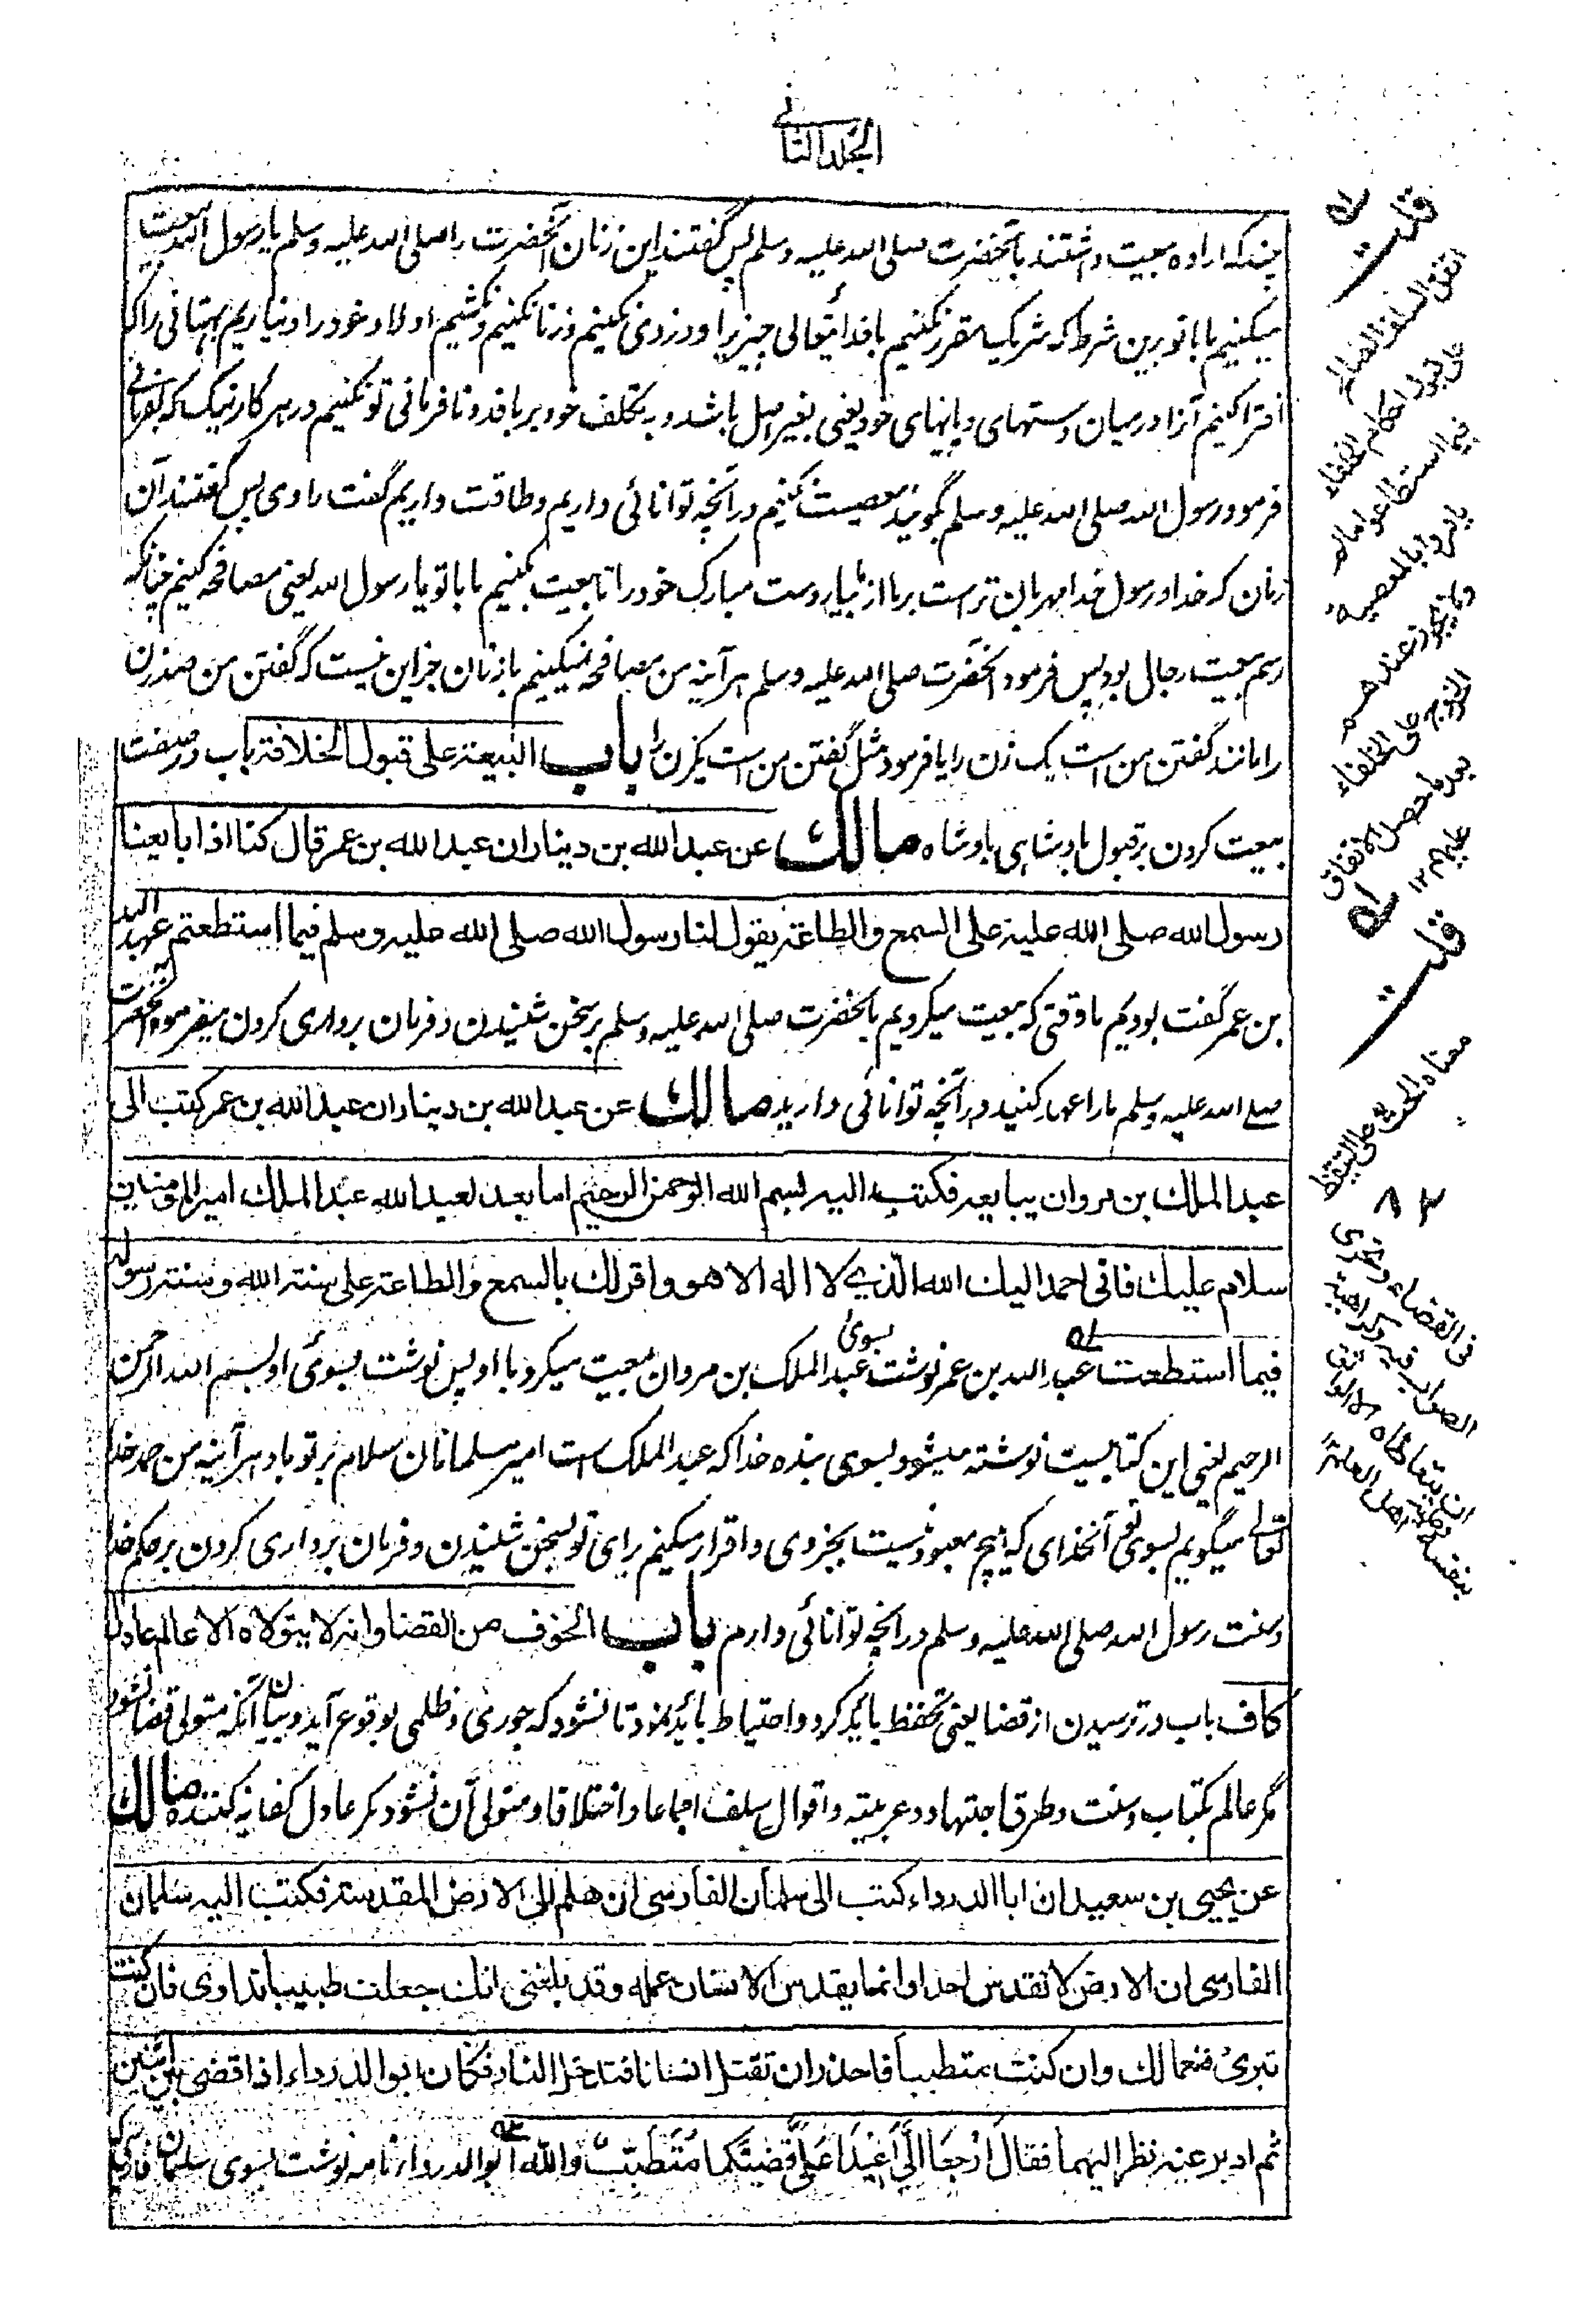 الجلد الثانی
چند که اراده بیعت داشتند بآنحضرت صلی الله علیه وسلم پس گفتند این زنان آنحضرت را صلی الله علیه وسلم یا رسول الله بیعت
میکنیم ما با تو برین شرط که شریک مقرر نکنیم با خدائتعالی چیزیرا و دزدی نکنیم و زنا نکنیم و نکشیم اولاد خود را و نیاریم بهتانی را که
افترا کنیم آنرا درمیان دستهای و پایهای خود یعنی بغیر اصل باشد و به تکلف خود بر بافد و نافرمانی تو نکنیم در هر کار نیک که بفرمائی
فرمود رسول الله صلی الله علیه وسلم بگوئید معصیت نکنیم درآنچه توانائی داریم و طاقت داریم گفت راوی پس گفتند آن
زنان که خدا و رسول خدا مهربان تر است برما از ما بیار دست مبارک خود را تا بیعت بکنیم ما با تو یا رسول الله یعنی مصافحه کنیم چنانکه
رسم بیعت رجال بود پس فرمود آنحضرت صلی الله علیه وسلم هر آینه من مصافحه نمیکنیم با زنان جز این نیست که گفتن من صد زن
را مانند گفتن من است یک زن را یا فرمود مثل گفتن من است یکزن را باب البیعة علی قبول الخلافة باب در صفت
بیعت کردن بر قبول بادشاهی بادشاه مالك عن عبد الله بن دینار ان عبد الله بن عمر قال کنا اذا بایعنا
رسول الله صلی الله علیه علی السمع والطاعة یقول لنا رسول الله صلی الله علیه وسلم فیما استطعتم عبد الله
بن عمر گفت بودیم ما وقتی که بیعت میکردیم بآنحضرت صلی الله علیه وسلم بر سخن شنیدن و فرمان برداری کردن میفرمود آنحضرت
صلی الله علیه وسلم ما را عهد کنید درآنچه توانائی دارید مالك عن عبد الله بن دینار ان عبد الله بن عمر کتب الی
عبد الملك بن مروان یبایعه فکتب الیه بسم الله الرحمن الرحیم اما بعد لعبد الله عبد الملك امیر المؤمنین
سلام علیك فانی احمد الیك الله الذی لا اله الا هو واقر لك بالسمع والطاعة علی سنة الله وسنة رسوله
فیما استطعت عبد الله بن عمر نوشت بسوئ عبد الملک بن مروان بیعت میکرد با او پس نوشت بسوئ او بسم الله الرحمن
الرحیم یعنی این کتابیست نوشته میشود بسوی بنده خدا که عبد الملک است امیر مسلمانان سلام بر تو باد هر آینه من حمد خدا
تعالی میگویم بسوی تو آنخدای که هیچ معبود نیست بجز وی و اقرار میکنیم برای تو بسخن شنیدن و فرمان برداری کردن بر حکم خدا
وسنت رسول الله صلی الله علیه وسلم درآنچه توانائی دارم باب الخوف من القضا وانه لا یتولاه الا عالم عادل
کاف باب در ترسیدن از قضا یعنی تحفظ باید کرد و احتیاط باید نمود تا نشود که جوری و ظلمی بوقوع آید و بیان آنکه متولی قضا نشود
مگر عالم بکتاب وسنت و طرق اجتهاد و عربیة واقوال سلف اجماعا واختلافا و متولی آن نشود مگر عادل کفایه کننده مالك
عن یحیی بن سعید ان ابا الدرداء کتب الی سلمان الفارسی ان هلم الی الارض المقدسة فکتب الیه سلمان
الفارسی ان الارض لا تقدس احدا وانما یقدس الانسان عمله وقد بلغنی انك جعلت طبیبا تداوی فان کنت
تبرئ فنعما لك وان کنت متطببا فاحذر ان تقتل انسانا فتدخل النار فکان ابو الدرداء اذا قضی بین اثنین
ثم ادبر عنه نظر الیهما فقال ارجعا الی اعیدا علی قضیتکما متطبب والله ابو الدرداء نامه نوشت بسوی سلمان فارسی که
قلت
اتفق السلف الصالح
علی قبول احکام الخلفاء
فیما استطاعوا ما لم
یامروا بالمعصیة
ولم یجوز عندهم
الخروج علی الخلفاء
بعد ما حصل الاتفاق
علیهم ١٢
قلت
معناه الحث علی التیقظ
فی القضاء وتحری
الصواب فیه وکراهیة
ان یتعاطاه الا الواثق
بنفسه